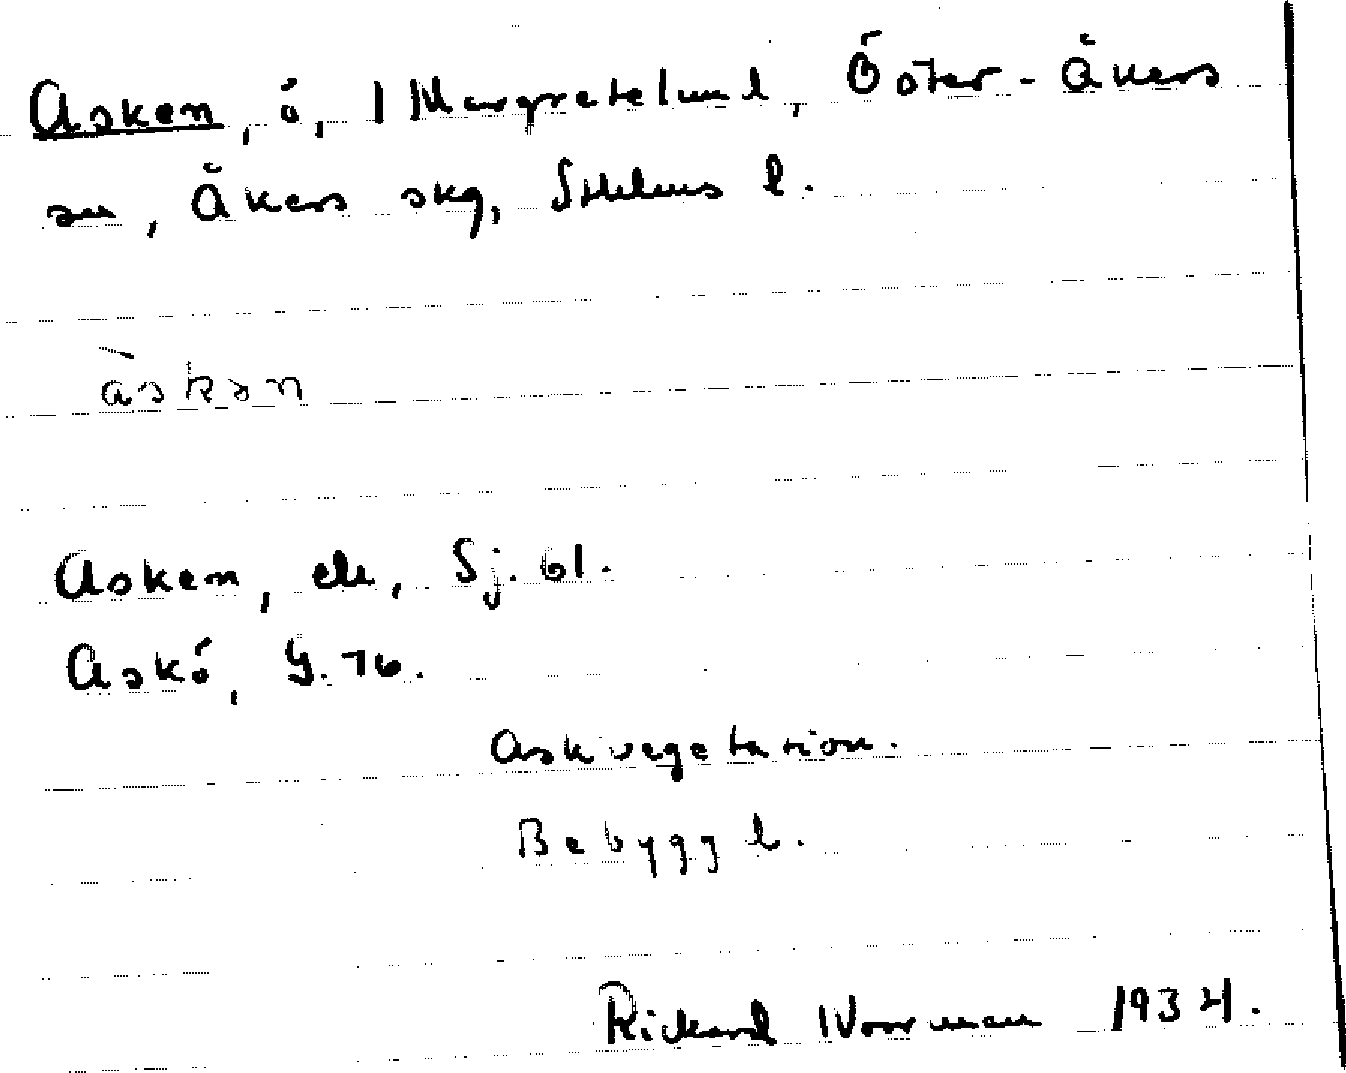 Asken, ö, 1 Margretelund, Öster-Åkers
sn, Åkers skg, Sthlms l.
àskən
Asken, ek, Sj. 61.
Askö, G. 76.
Askvegetation.
Bebygg l.
Rickard Norrman 1934.